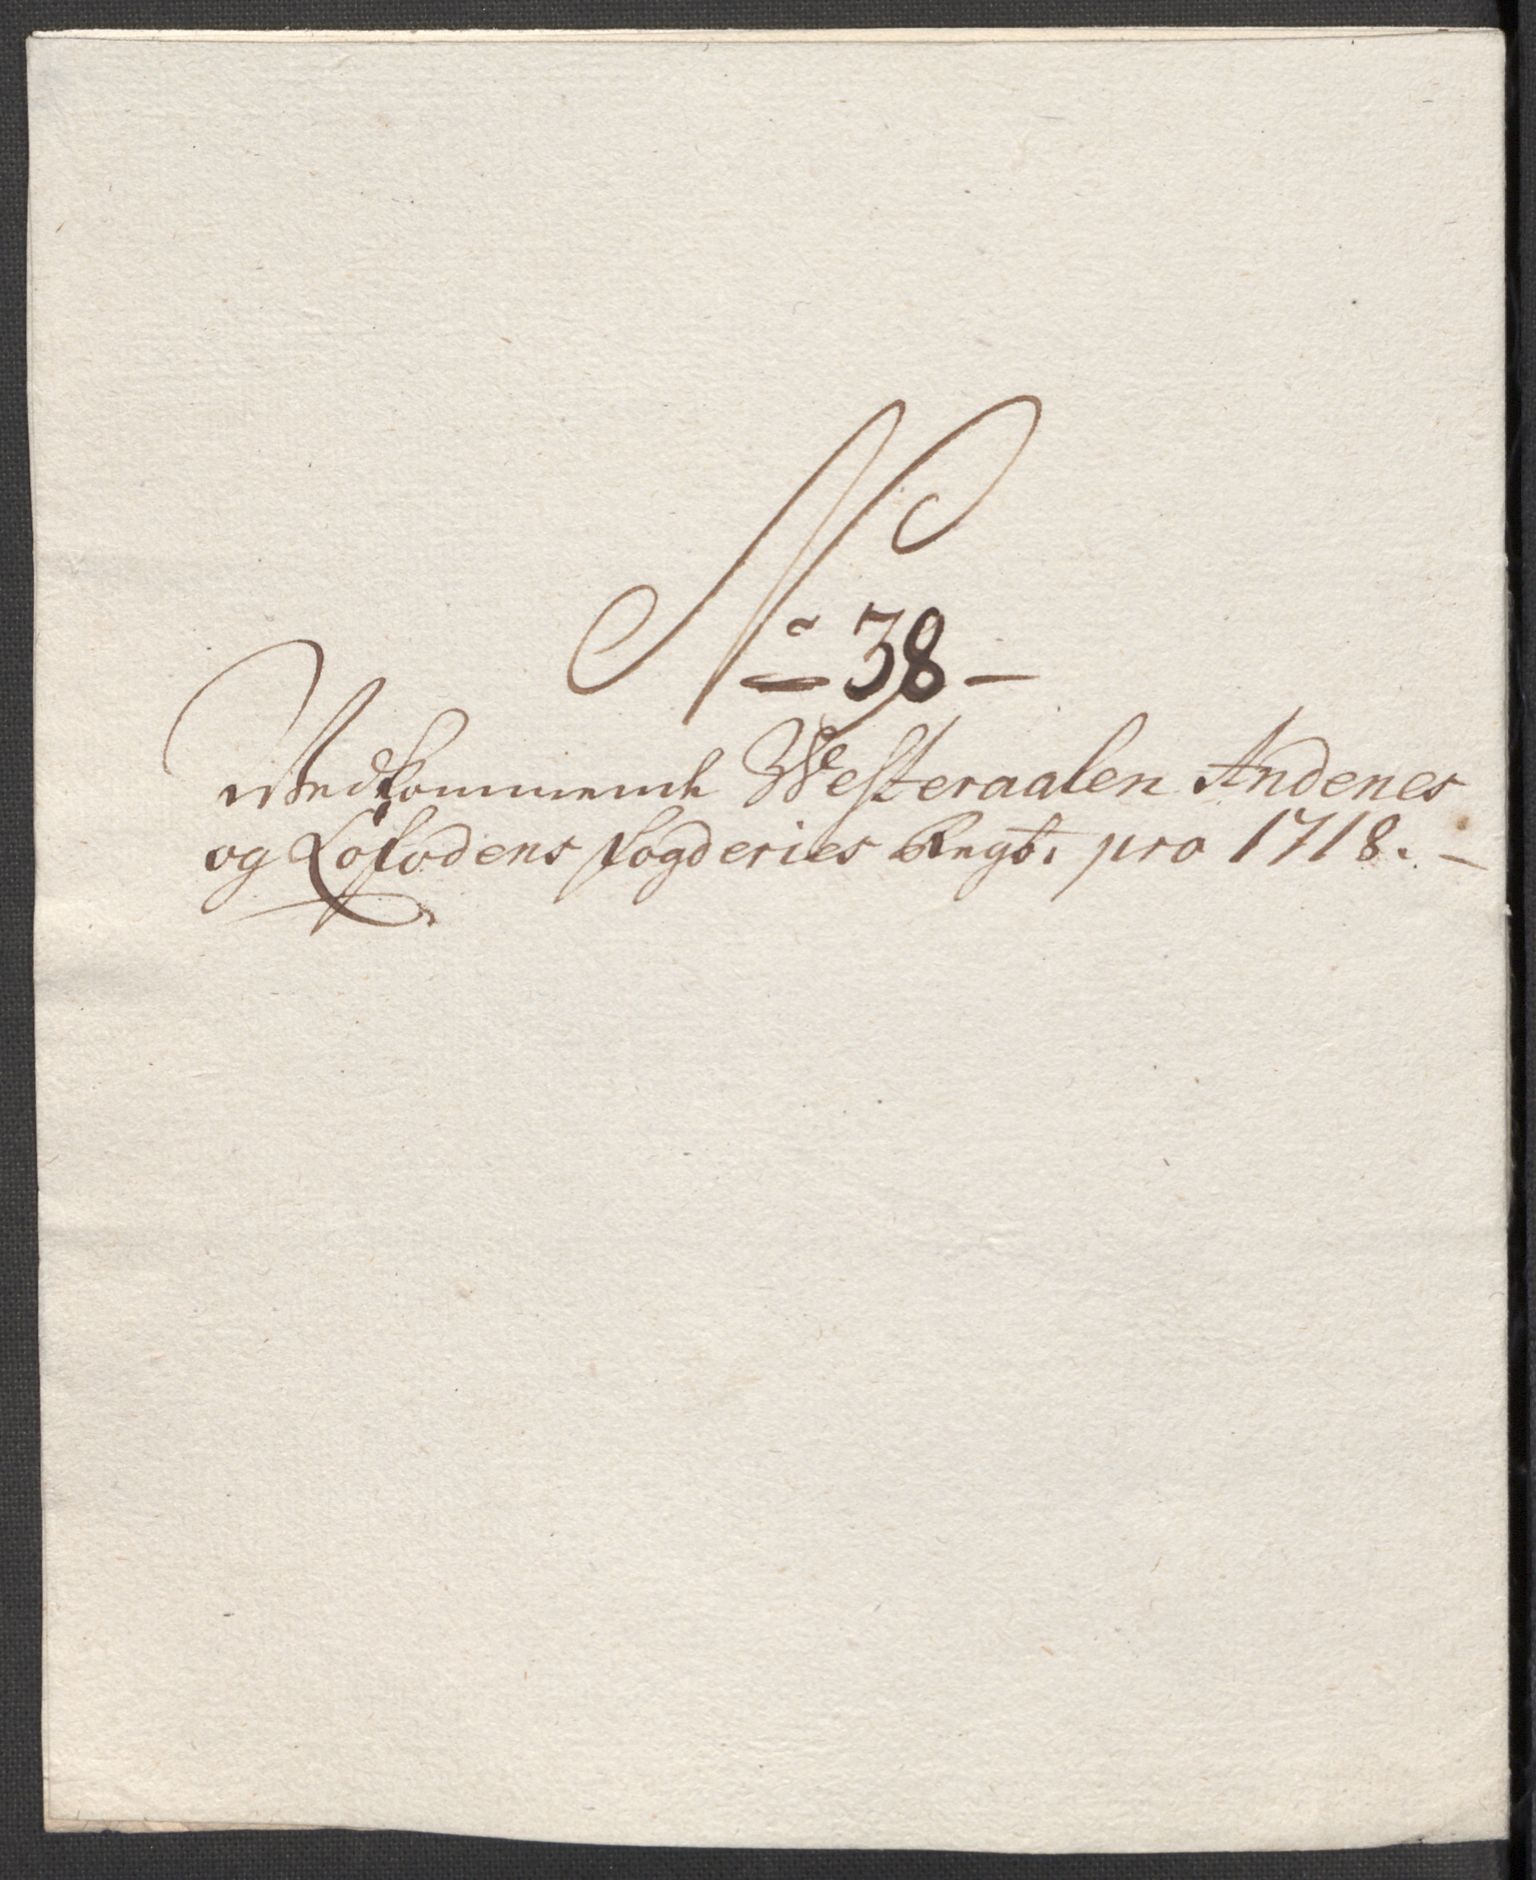 No 38 –
Vedkommende Westeraalen Andenes
og Lofodens fogderies Regsb. pro 1718. –